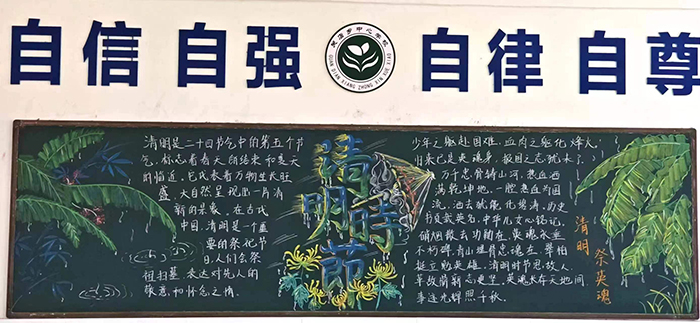 自信 自强 自律 自尊
清明是二十四节气中的第五个节
气，标志着春天的结束和夏天
的临近，它代表着万物生长旺
盛，大自然呈现出一片清
新的景象，在古代
中国，清明是一个重
要的祭祀节
日，人们会祭
祖扫墓，表达对先人的
敬意和怀念之情。
清明时节
少年之躯赴国难，血肉之躯化烽火，
归来已是英魂身，报国之志犹未了。
万千忠骨铸山河，热血洒
满乾坤地，一腔热血为国
流，洒去赋能化碧清，历史
书页载英名，中华儿女心铭记，
硝烟散去功勋在，英魂永垂
不朽碑，青山埋骨忠魂在，翠柏
挺立勉英雄，清明时节忌故人，
革故前朝志更坚，英魂长存天地间
事迹光辉照千秋。
清明
祭英魂